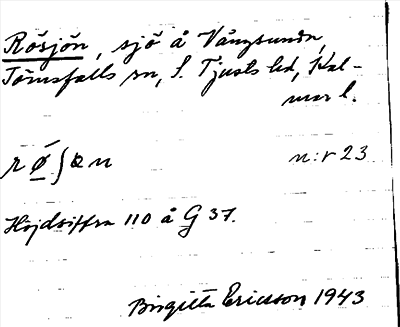 Rösjön, sjö å Vångsunda,
Törnsfalls sn, S. Tjusts hd, Kal-
mar l.
n:r 23
Höjdsiffra 110 å G 37.
Birgitta Ericsson 1943